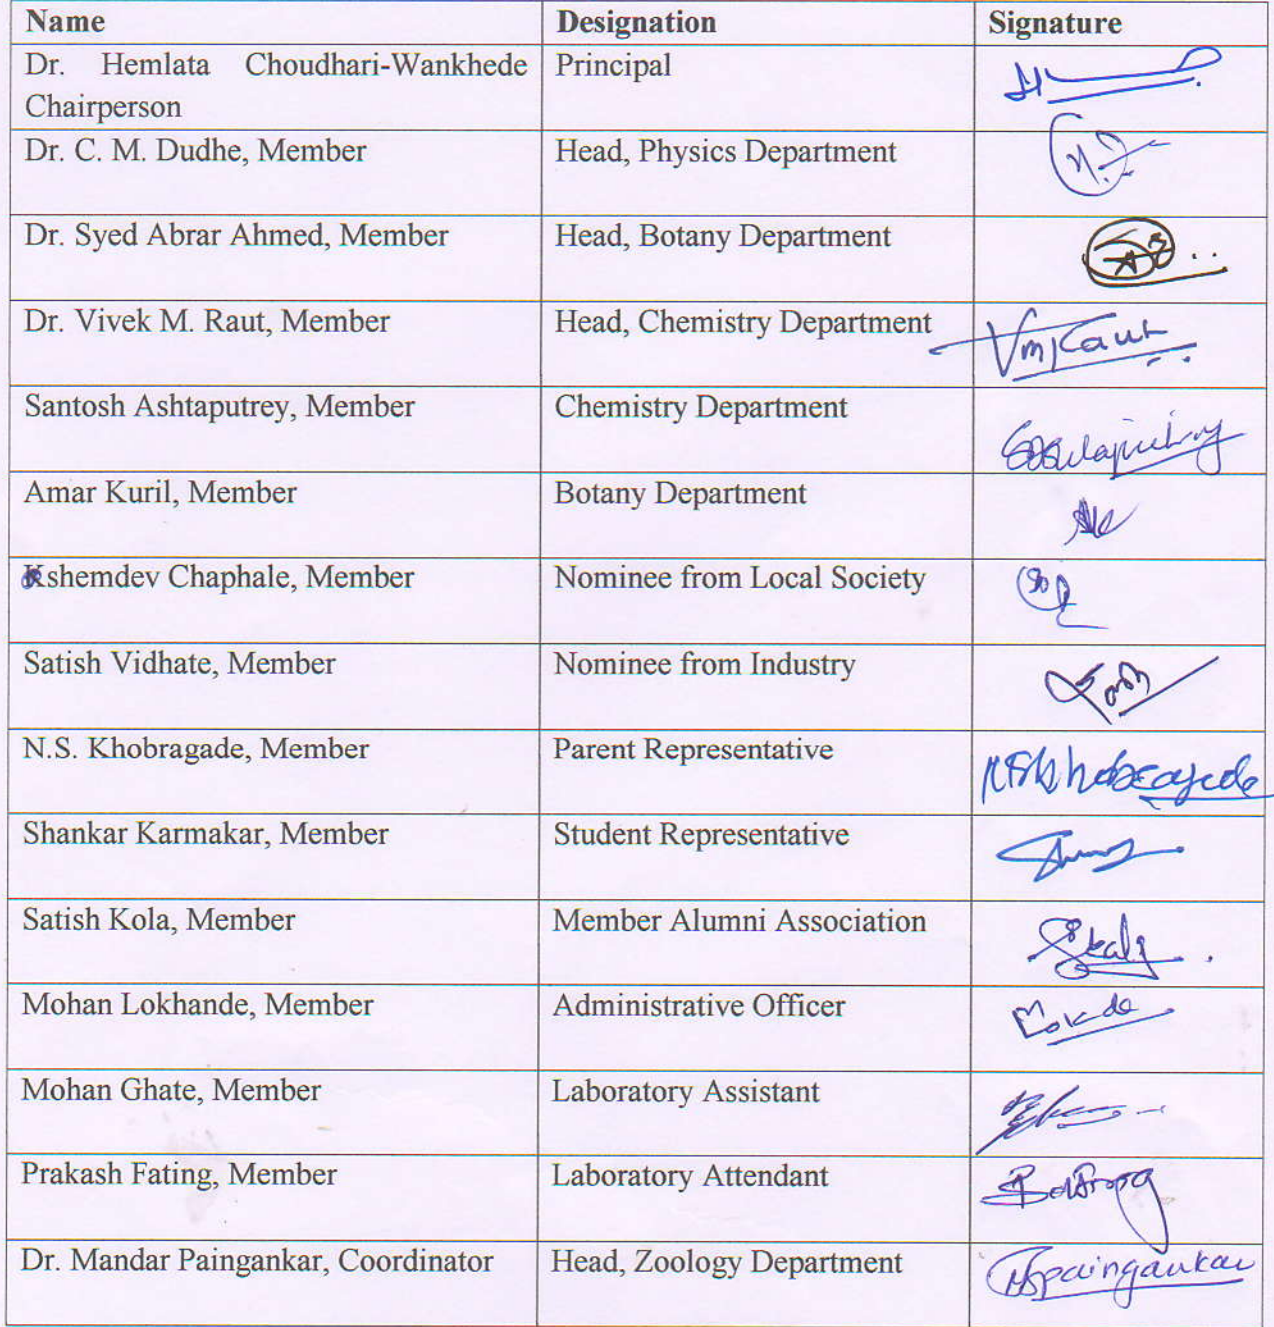 Name Designation Signature
Dr. Hemlata Choudhari-Wankhede Principal
Chairperson
Dr. C. M. Dudhe, Member Head, Physics Department
Dr. Syed Abrar Ahmed, Member Head, Botany Department
Dr. Vivek M. Raut, Member Head, Chemistry Department VmRaut
Santosh Ashtaputrey, Member Chemistry Department
Amar Kuril, Member Botany Department
Kshemdev Chaphale, Member Nominee from Local Society
Satish Vidhate, Member Nominee from Industry
N.S. Khobragade, Member Parent Representative NSKhobragade
Shankar Karmakar, Member Student Representative
Satish Kola, Member Member Alumni Association
Mohan Lokhande, Member Administrative Officer
Mohan Ghate, Member Laboratory Assistant
Prakash Fating, Member Laboratory Attendant
Dr. Mandar Paingankar, Coordinator Head, Zoology Department MSpaingankar